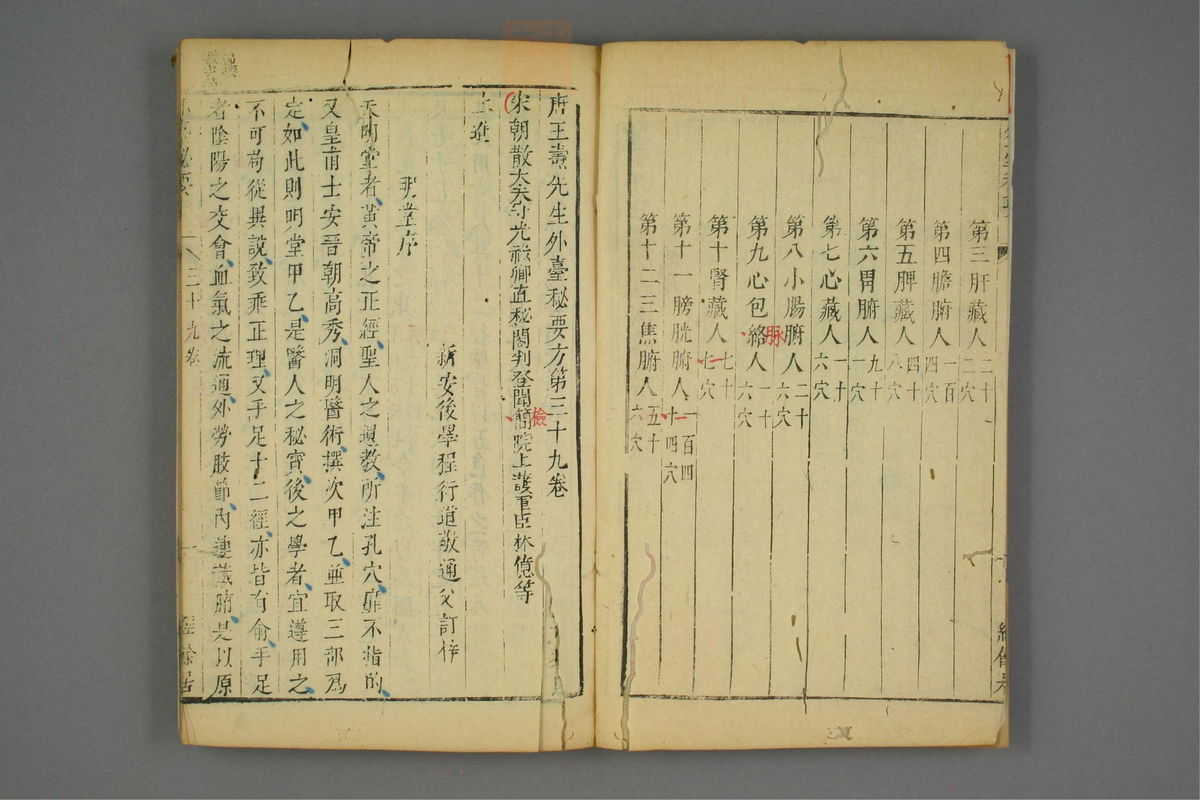 第三肝藏人二十二穴
第四膽腑人一百四穴
第五脾藏人四十八穴
第六胃腑人九十穴
第七心藏人一十六穴
第八小腸腑人二十六穴
第九心包絡人一十六穴
脉
第十腎藏人七十七穴
一
第十一膀胱腑人一百四十四穴
一
第十二三焦腑人五十六穴
唐王燾先生外臺秘要方第三十九卷
宋朝散大夫守光祿卿直秘閣判登聞簡院上護軍臣林億等
檢
上進
新安後學程行道敬通父訂梓
明堂序
夫明堂者黃帝之正經聖人之遺教所注孔穴靡不指的
又皇甫士安晉朝高秀洞明醫術撰次甲乙並取三部爲
定如此則明堂甲乙是醫人之秘寳後之學者宜遵用之
不可苟從異說致乖正理又手足十二經亦皆有俞手足
者陰陽之交會血氣之流通外勞肢節內連藏腑是以原
三十九卷
經餘居